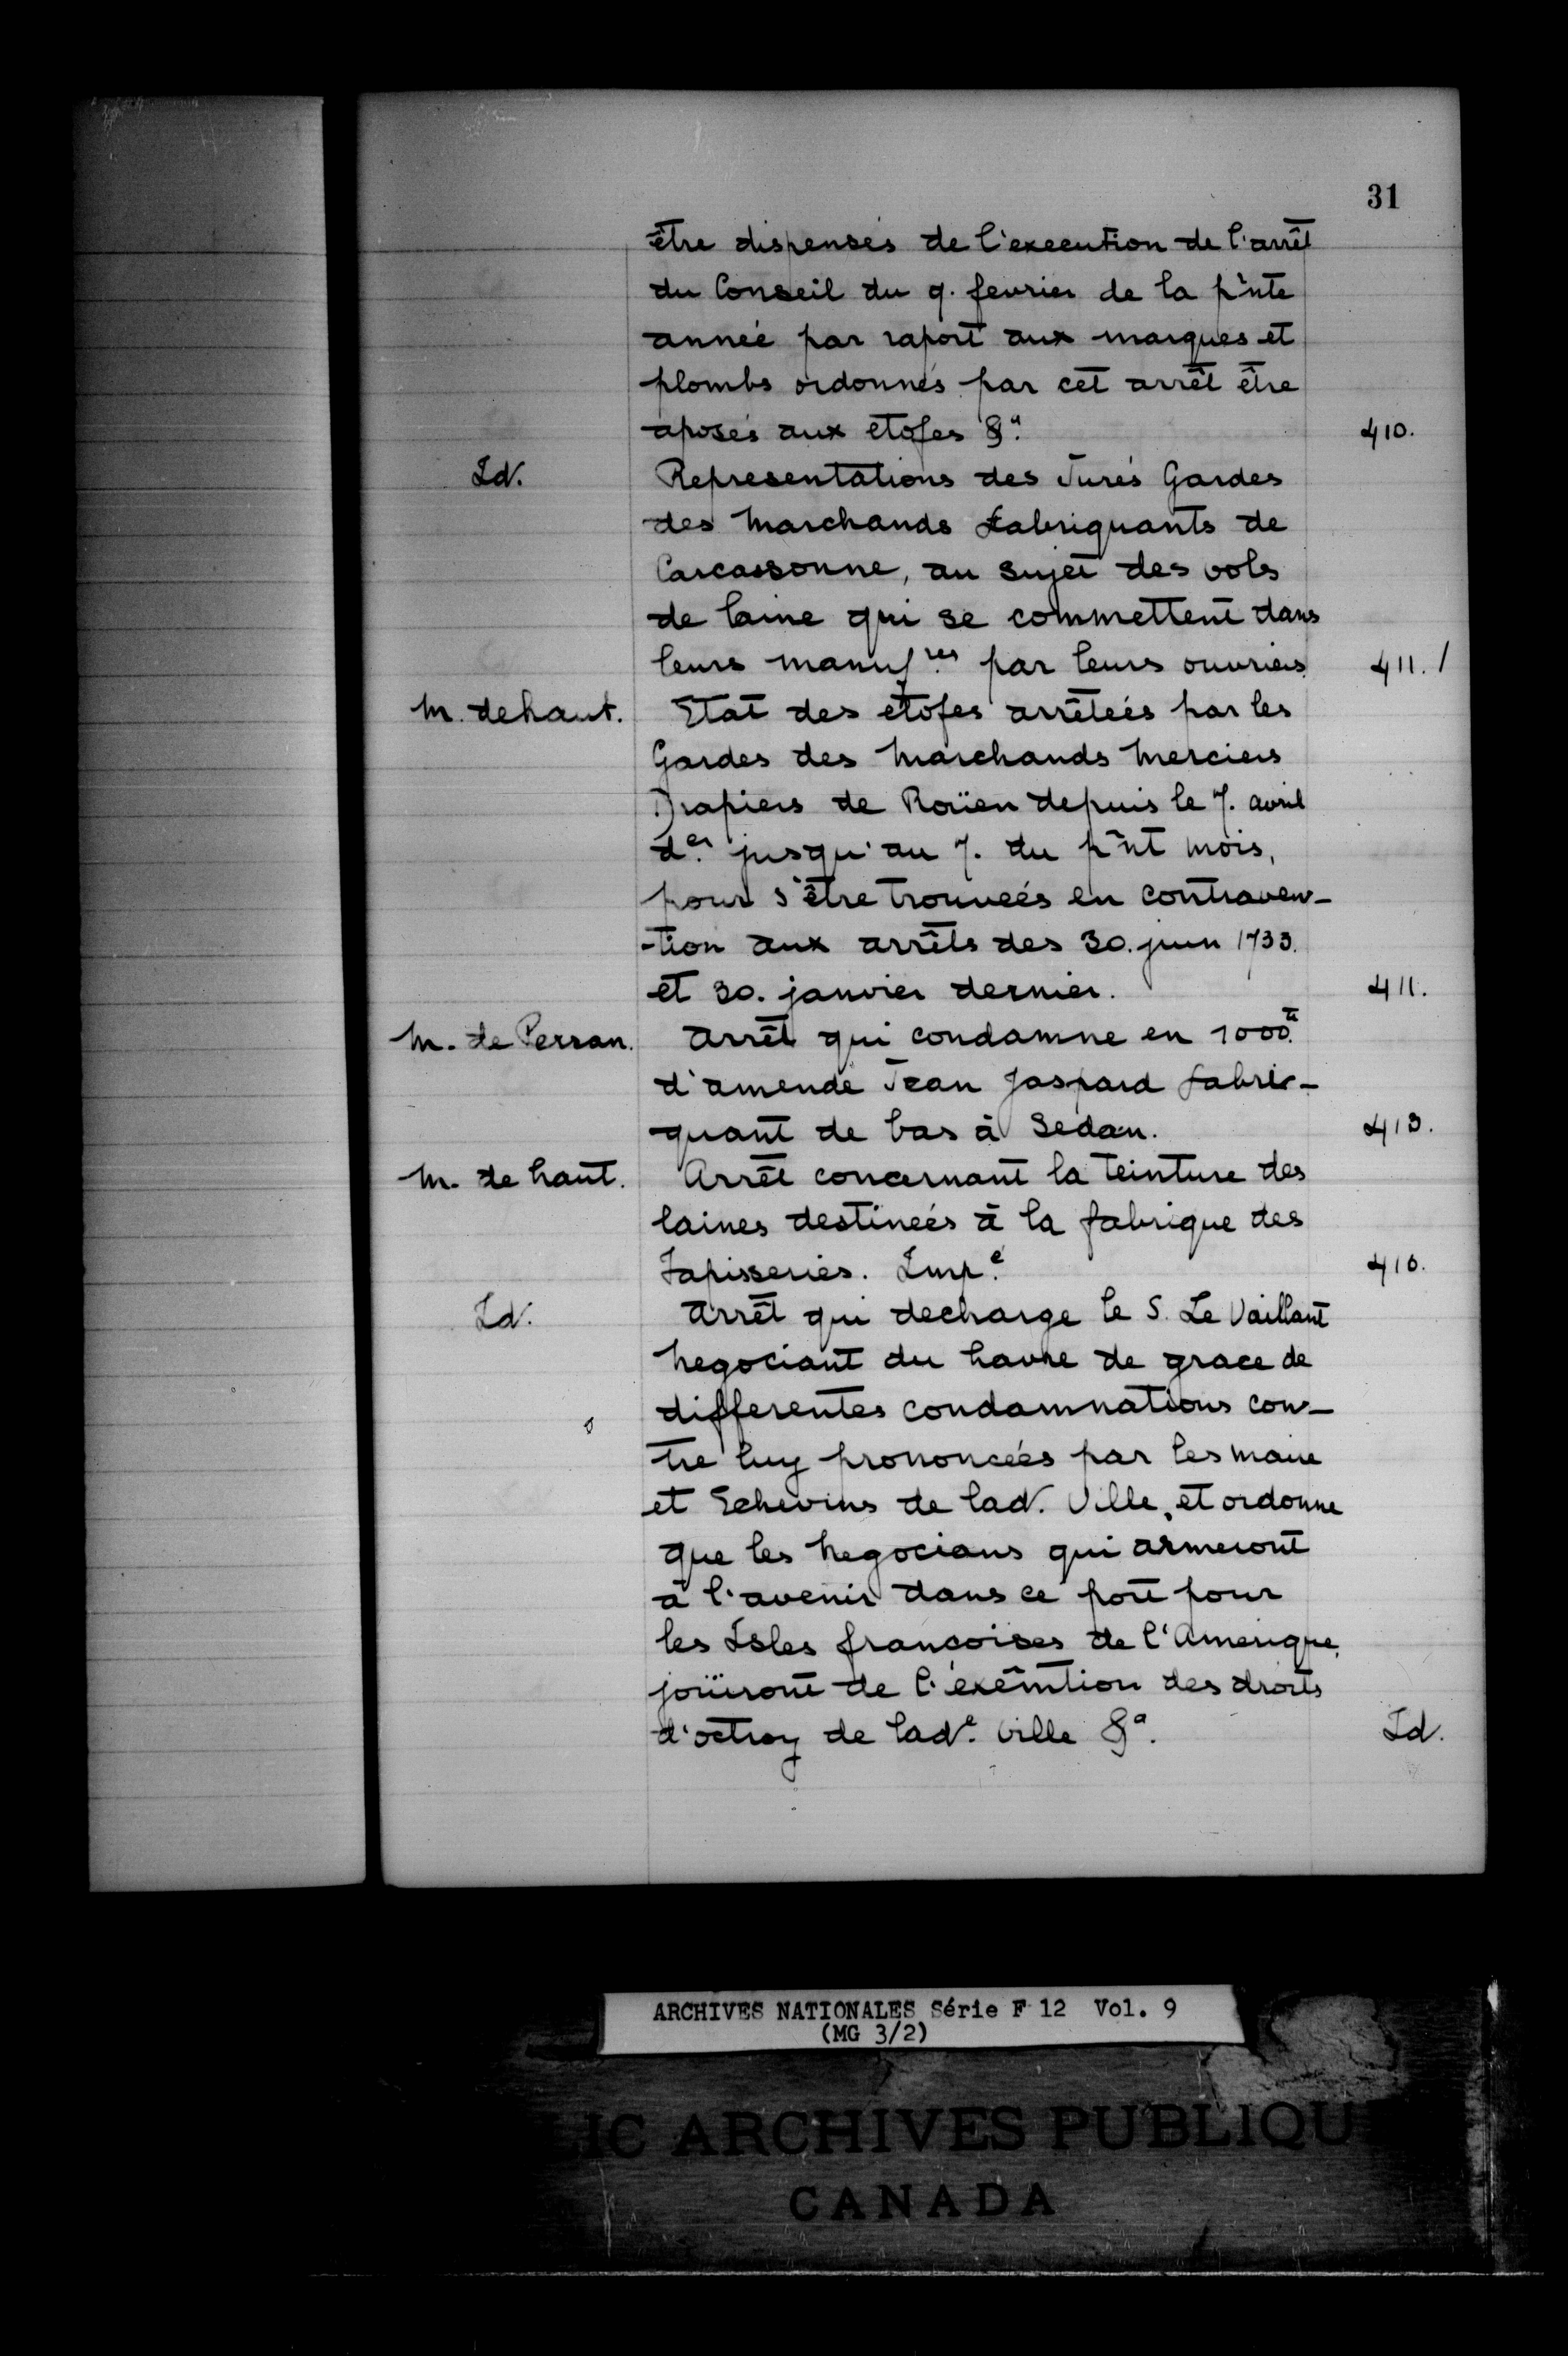 31
être dispensés de l'execution de l'arrêt
du Conseil du 9. fevrier de la p̃nte
année par raport aux marques et
plombs ordonnés par cet arrêt être
aposés aux etofes &a. 410.
Id. Representations des Jurés Gardes
des Marchands fabriquants de
Carcassonne, au sujet des vols
de laine qui se commettent dans
leurs manuf.res par leurs ouvriers 411. /
M. de haut. Etat des etofes arrêteés par les
Gardes des Marchands Merciers
Drapiers de Roüen depuis le 7. avril
d.er jusqu'au 7. du p̃nt mois,
pour s'être trouveés en contraven-
-tion aux arrêts des 30. juin 1733.
et 30. janvier dernier. 411.
M. de Persan. arrêt qui condamne en 1000.tt
d'amende Jean Jaspard fabri-
quant de bas à Sedan. 413.
M. de haut. Arrêt concernant la teinture des
laines destineés à la fabrique des
Tapisseries. Imp.é 416.
Id. arrêt qui decharge le S. Le Vaillant
Negociant du havre de grace de
differentes condamnations con-
tre luy prononceés par les maire
et Echevins de lad. Ville, et ordonne
que les Negocians qui armeront
à l'avenir dans ce port pour
les Isles françoises de l'Amerique,
joüiront de l'exêmtion des droits
d'octroy de lad.e ville &a. Id.
ARCHIVES NATIONALES Série F 12 Vol. 9
(MG 3/2)
LIC ARCHIVES PUBLIQU
CANADA